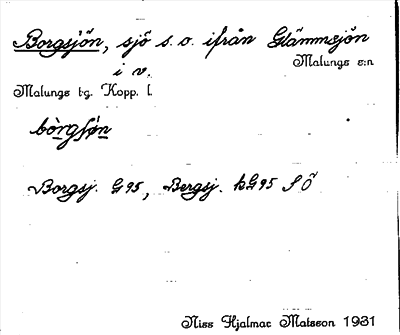 Borgsjön, sjö s. o. ifrån Glämmsjön
i v. Malungs s:n
Malungs tg. Kopp. l.
bòrgʃø̀n
Borgsj. G95, Bergsj. kG95 S Ö
Niss Hjalmar Matsson 1931